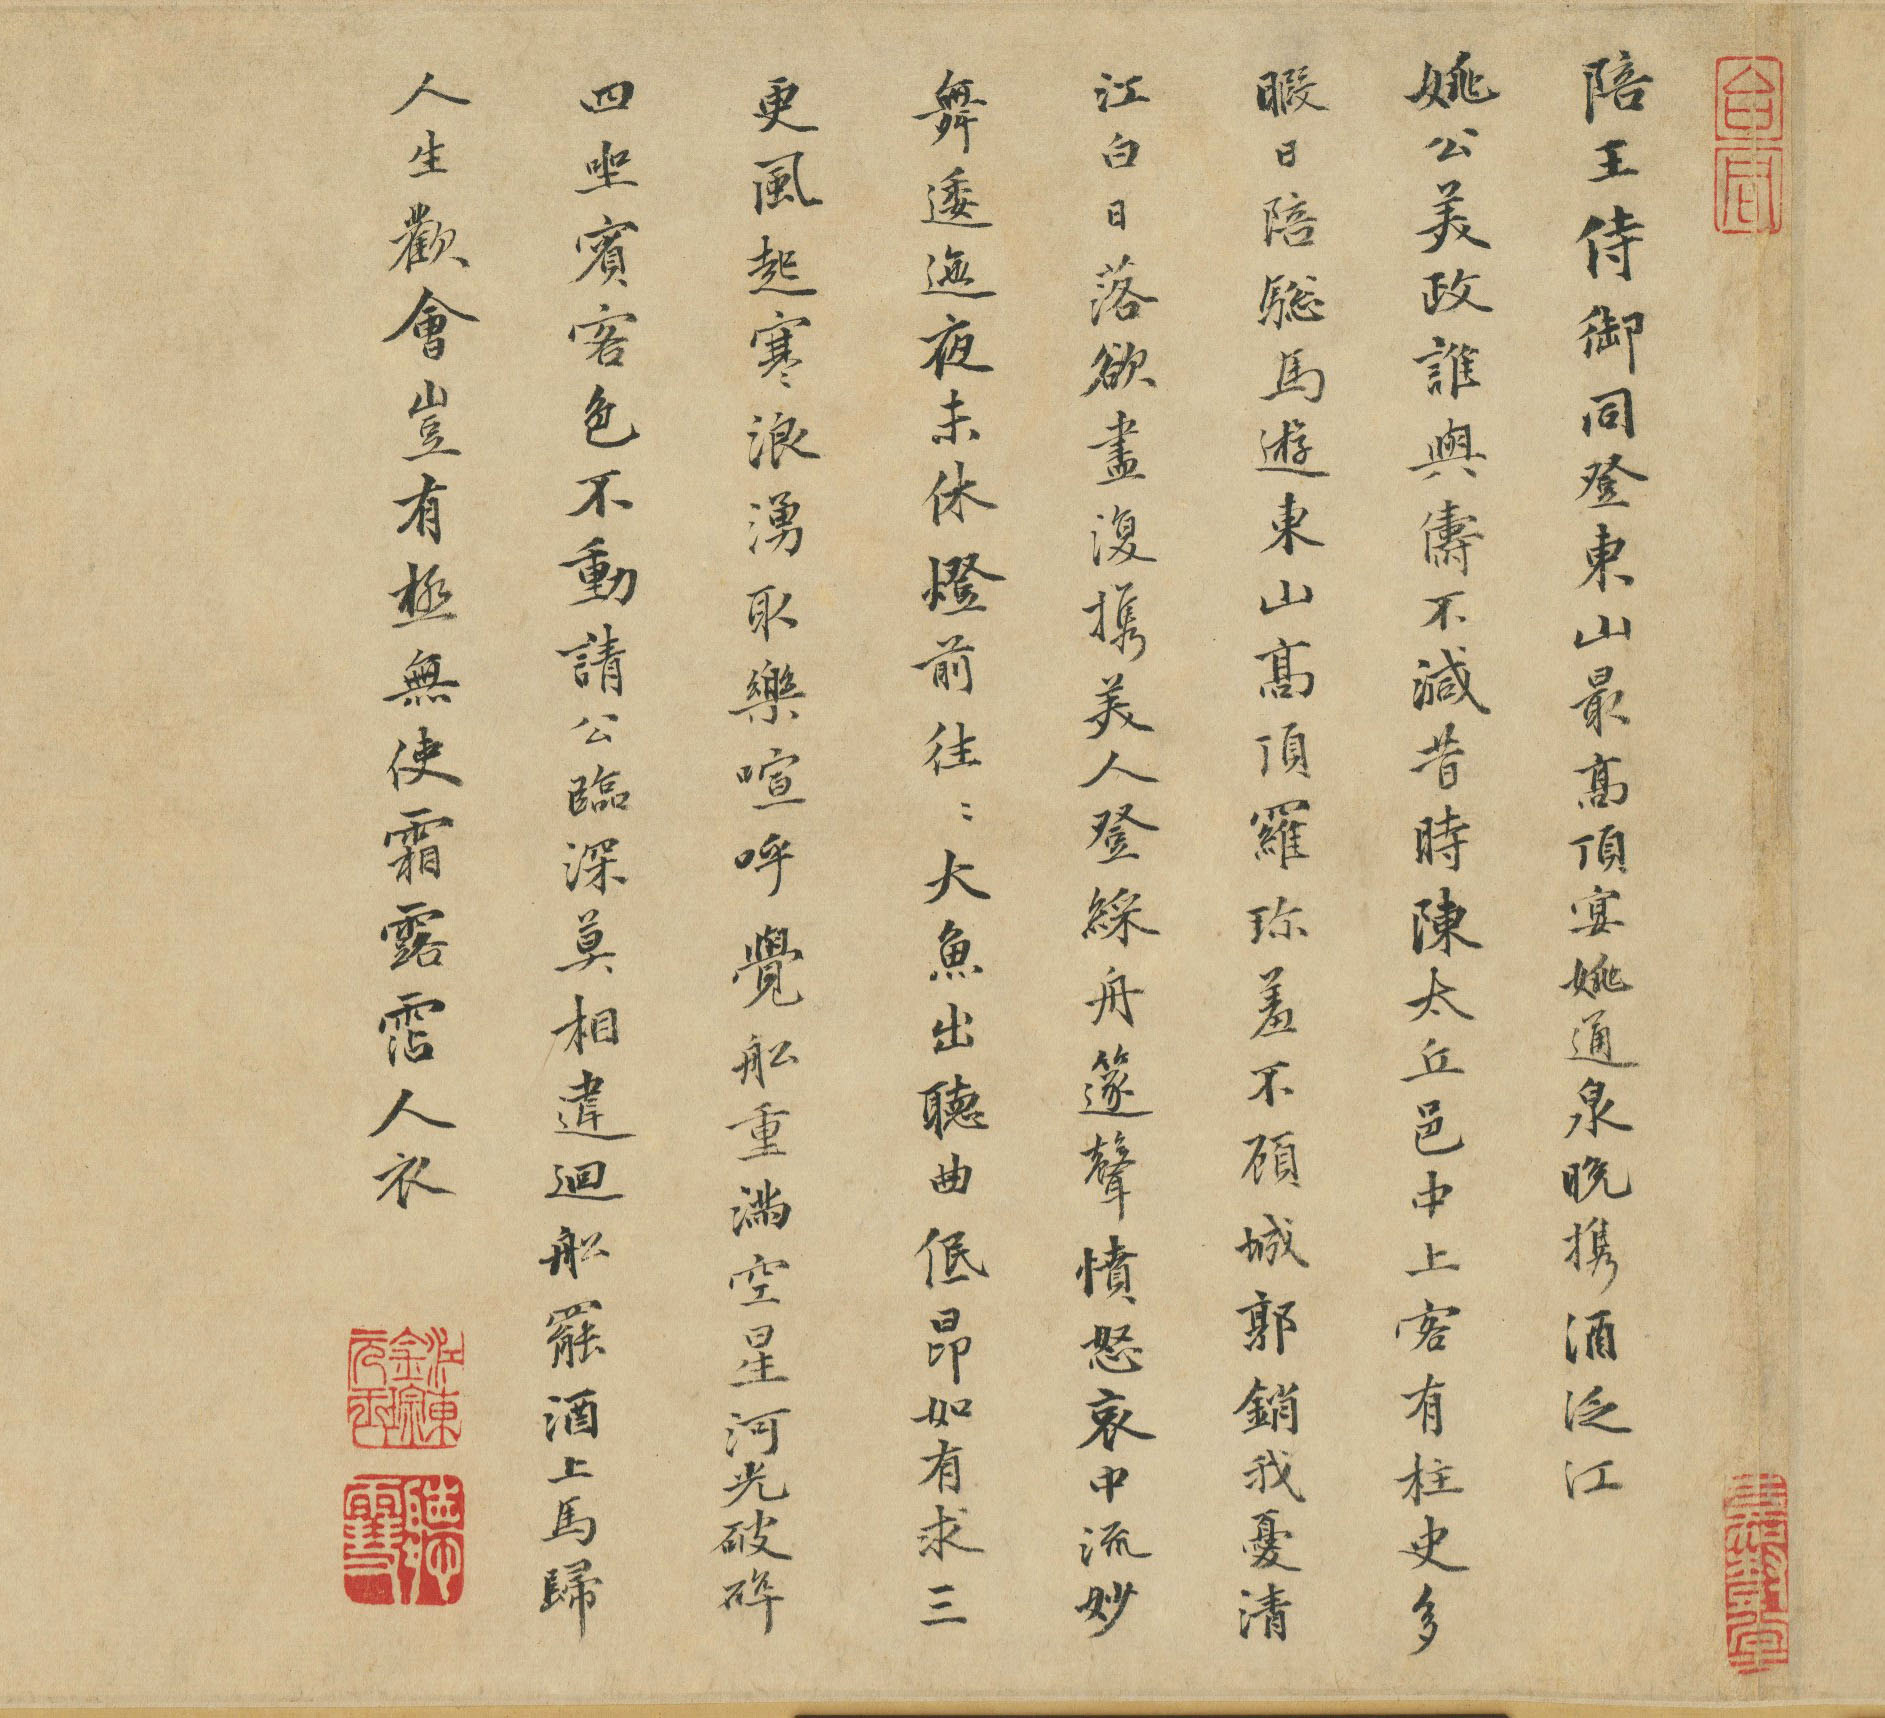 陪王侍御同登東山最高頂宴姚通泉晚攜酒泛江
姚公美政誰與儔不減昔時陳太丘邑中上客有柱史多
暇日陪驄馬遊東山高頂羅珎羞不顧城郭銷我憂清
江白日落欲盡復攜美人登綵舟篴聲憤怒哀中流妙
舞逶迤夜未休燈前往〻大魚出聽曲低昂如有求三
更風起寒浪湧取樂喧呼覺船重滿空星河光破碎
四坐賓客色不動請公臨深莫相違迴船罷酒上馬歸
人生歡會豈有極無使霜露霑人衣